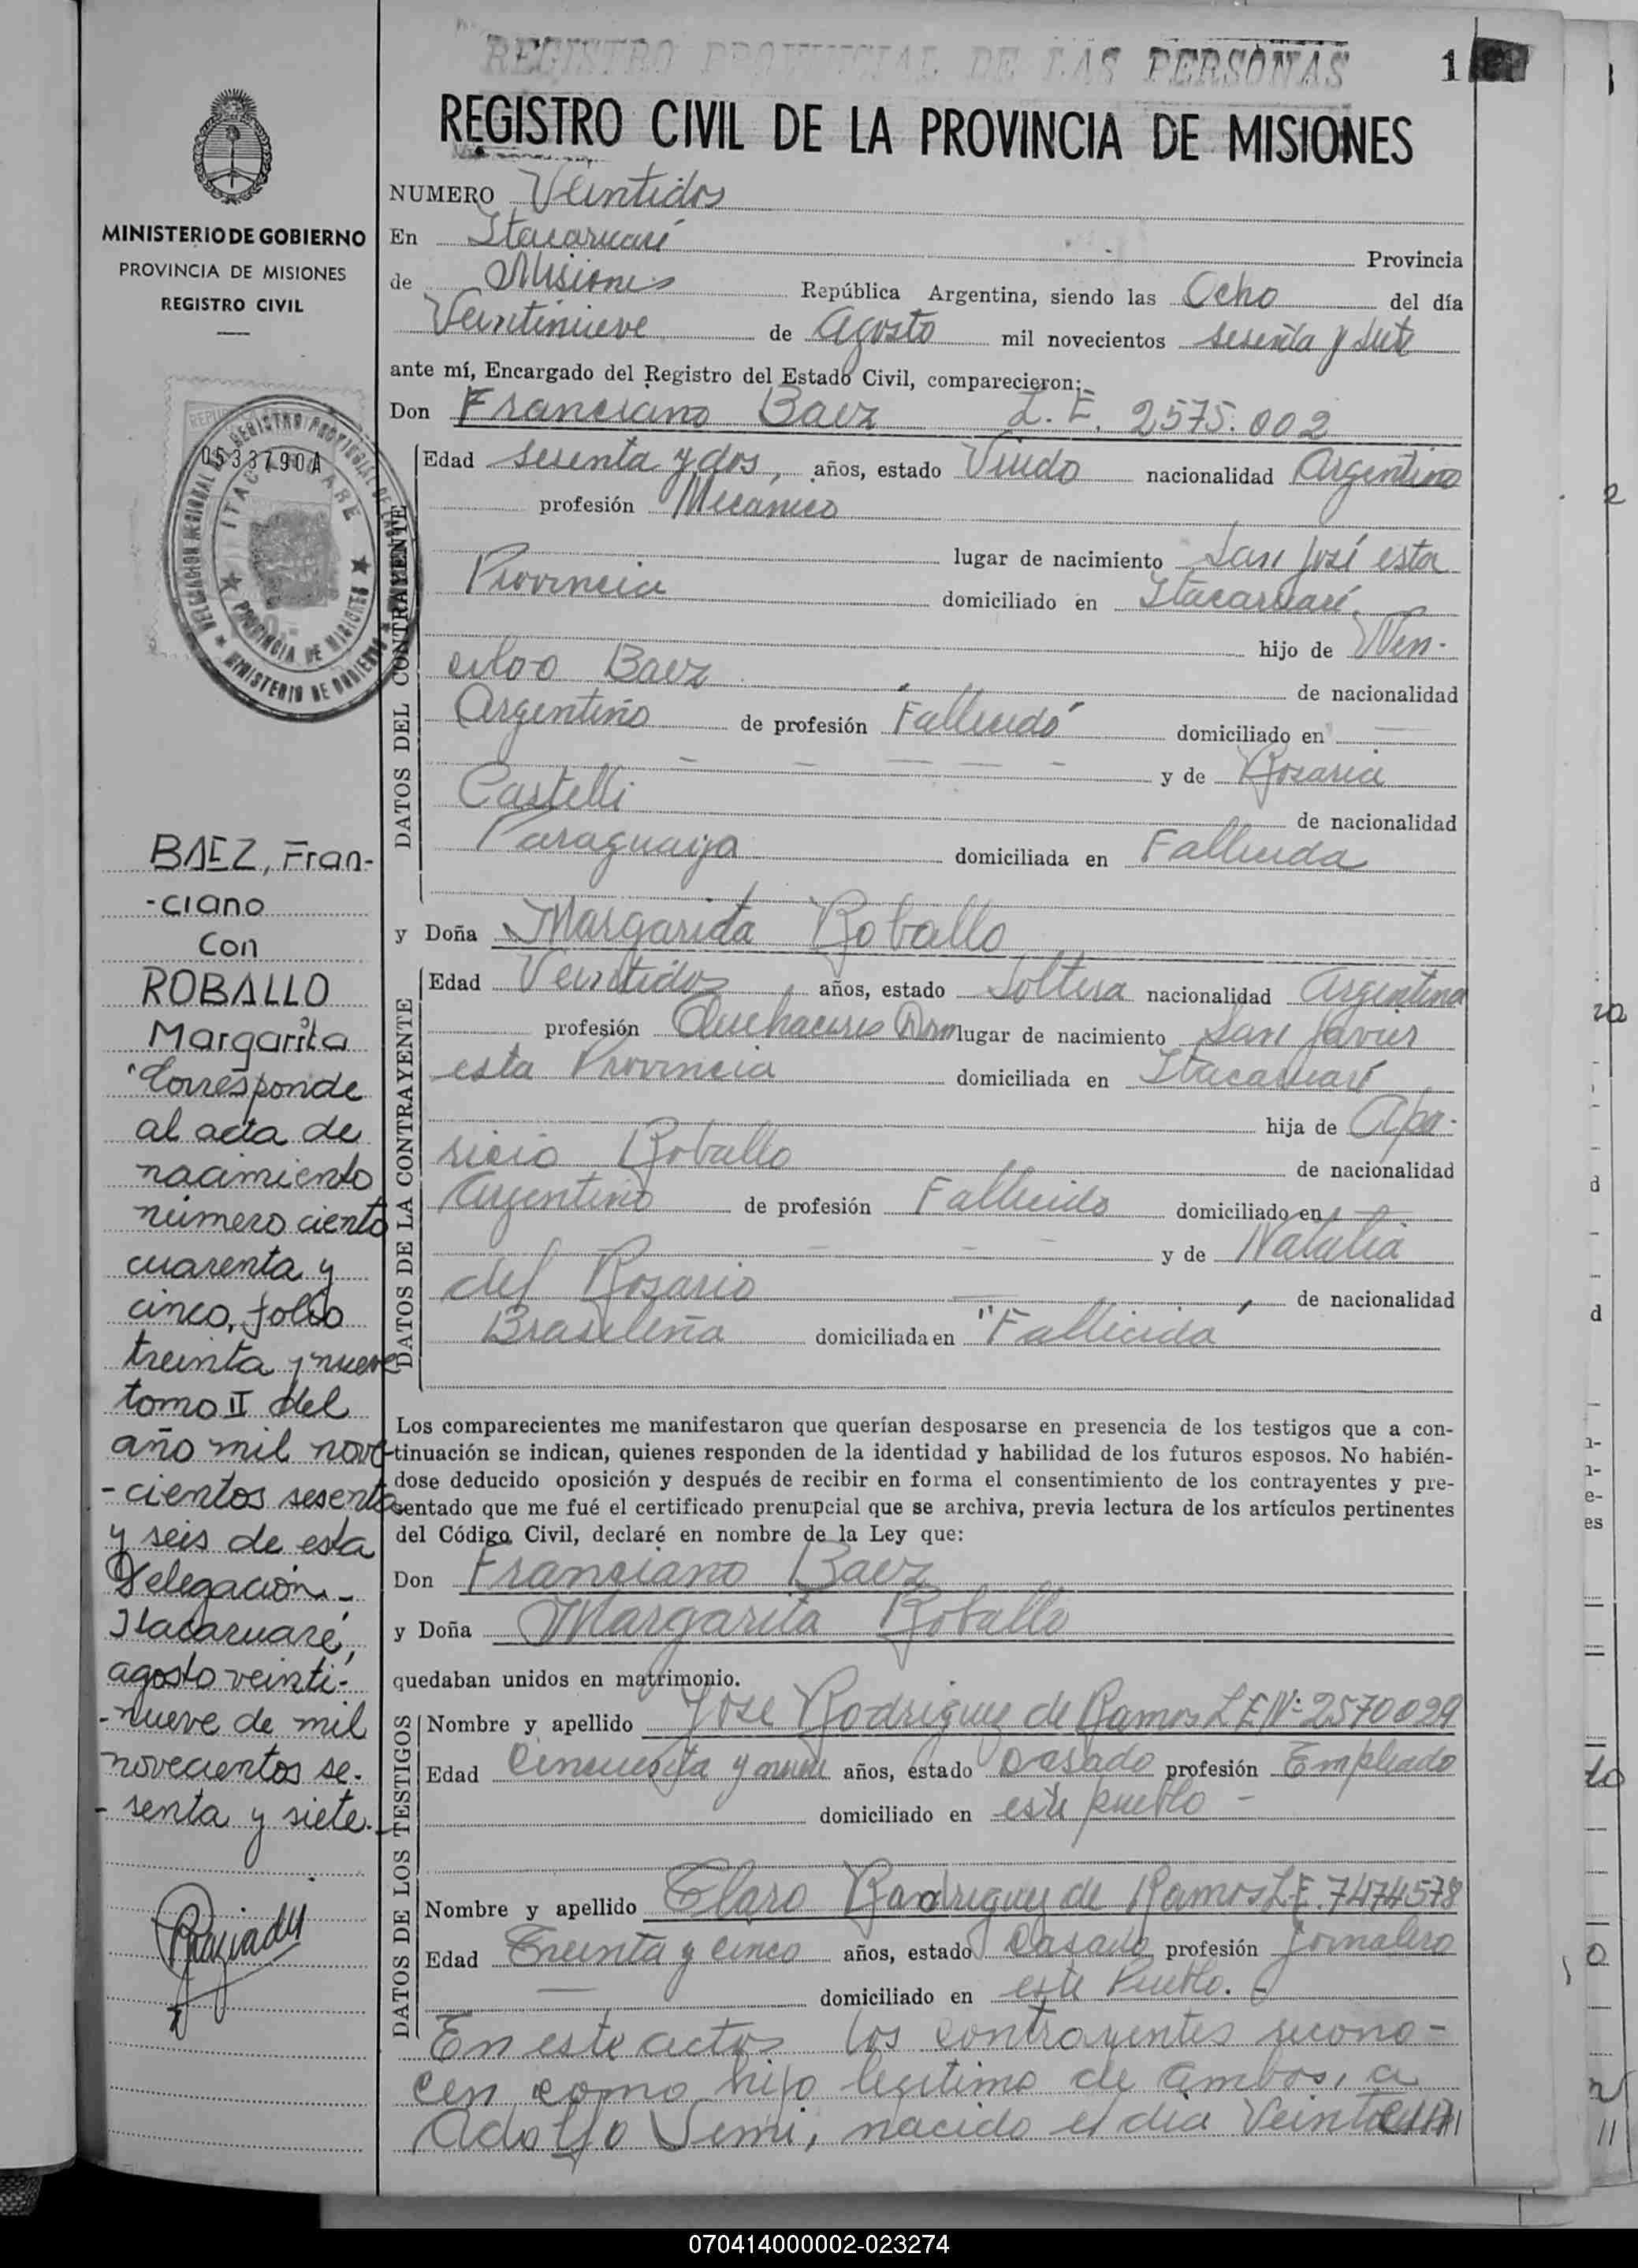 REGISTRO PROVINCIAL DE LAS PERSONAS
1
REGISTRO CIVIL DE LA PROVINCIA DE MISIONES
MINISTERIO DE GOBIERNO
PROVINCIA DE MISIONES
REGISTRO CIVIL
0533790A
ITACARUARE
PROVINCIA DE MISIONES
MINISTERIO DE GOBIERNO
BAEZ, Fran-
-ciano
Con
ROBALLO
Margarita
Corresponde
al acta de
nacimiento
número ciento
cuarenta y
cinco, folio
treinta y nueve
tomo II del
año mil nove-
-cientos sesenta
y seis de esta
Delegación.-
Itacaruaré,
agosto veinti-
-nueve de mil
novecientos se-
-senta y siete.-
NUMERO Veintidos
En Itacaruaré
Provincia
de Misiones República Argentina, siendo las Ocho del día
Veintinueve de Agosto mil novecientos sesenta y siete
ante mí, Encargado del Registro del Estado Civil, comparecieron:
Don Franciano Baez L. E. 2575.002
DATOS DEL CONTRAYENTE
Edad sesenta y dos, años, estado Viudo nacionalidad Argentino
profesión Mecanico
lugar de nacimiento San José esta
Provincia domiciliado en Itacaruaré,
hijo de Wen-
ceslao Baez de nacionalidad
Argentino de profesión Fallecido domiciliado en —
— — — — — y de Rosaria
Castelli de nacionalidad
Paraguaya domiciliada en Fallecida
y Doña Margarita Roballo
DATOS DE LA CONTRAYENTE
Edad Veintidos años, estado Soltera nacionalidad Argentina
profesión Quehaceres Dom lugar de nacimiento San Javier
esta Provincia domiciliada en Itacaruaré
hija de Apa-
ricio Roballo de nacionalidad
Argentino de profesión Fallecido domiciliado en —
— — — y de Natalia
del Rosario — de nacionalidad
Brasileña domiciliada en "Fallecida
Los comparecientes me manifestaron que querían desposarse en presencia de los testigos que a con-
tinuación se indican, quienes responden de la identidad y habilidad de los futuros esposos. No habién-
dose deducido oposición y después de recibir en forma el consentimiento de los contrayentes y pre-
sentado que me fué el certificado prenupcial que se archiva, previa lectura de los artículos pertinentes
del Código Civil, declaré en nombre de la Ley que:
Don Franciano Baez
y Doña Margarita Roballo
quedaban unidos en matrimonio.
DATOS DE LOS TESTIGOS
Nombre y apellido Jose Rodriguez de Ramos L E Nº 2570029
Edad Cincuenta y nueve años, estado Casado profesión Empleado
domiciliado en este pueblo -
Nombre y apellido Claro Rodriguez de Ramos L.E. 7474578
Edad Treinta y cinco años, estado Casado profesión Jornalero
— domiciliado en este Pueblo. -
En este acto los contrayentes recono-
cen como hijo legitimo de ambos, a
Adolfo , nacido el dia
070414000002-023274